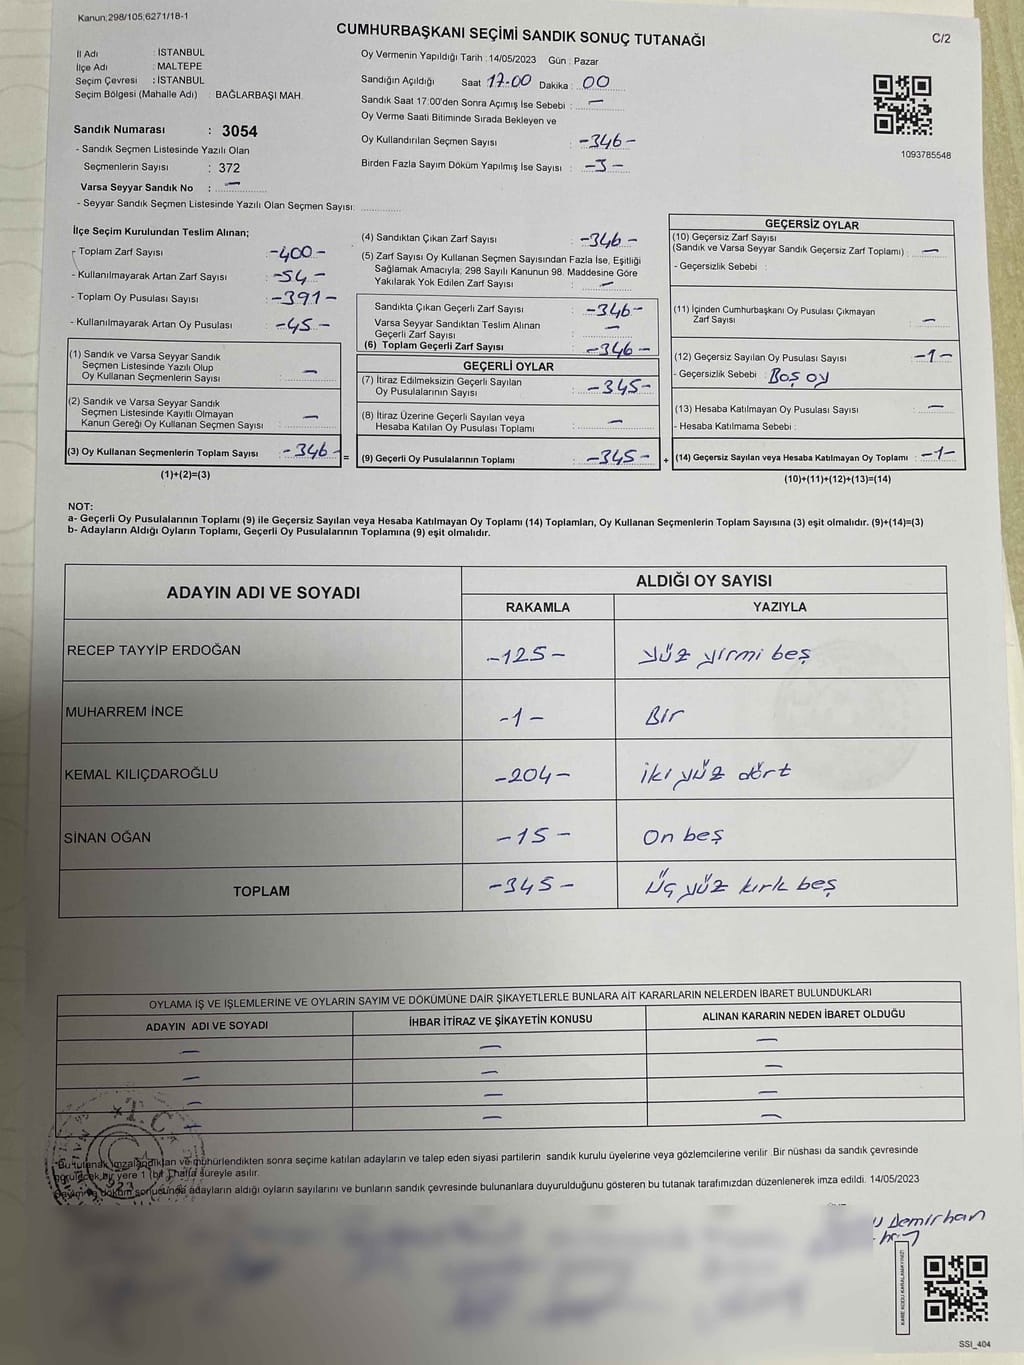 Kanun:298/105,6271/18-1
CUMHURBAŞKANI SEÇİMİ SANDIK SONUÇ TUTANAĞI
C/2
İl Adı : İSTANBUL
İlçe Adı : MALTEPE
Seçim Çevresi : İSTANBUL
Seçim Bölgesi (Mahalle Adı) : BAĞLARBAŞI MAH.
Sandık Numarası : 3054
- Sandık Seçmen Listesinde Yazılı Olan
Seçmenlerin Sayısı : 372
Varsa Seyyar Sandık No : —
- Seyyar Sandık Seçmen Listesinde Yazılı Olan Seçmen Sayısı: ............
Oy Vermenin Yapıldığı Tarih : 14/05/2023 Gün : Pazar
Sandığın Açıldığı Saat 17.00 Dakika : 00
Sandık Saat 17:00'den Sonra Açımış İse Sebebi : —
Oy Verme Saati Bitiminde Sırada Bekleyen ve
Oy Kullandırılan Seçmen Sayısı : -346-
Birden Fazla Sayım Döküm Yapılmış İse Sayısı : -3-
1093785548
İlçe Seçim Kurulundan Teslim Alınan;
- Toplam Zarf Sayısı : -400-
- Kullanılmayarak Artan Zarf Sayısı : -54-
- Toplam Oy Pusulası Sayısı : -391-
- Kullanılmayarak Artan Oy Pusulası : -45-
(1) Sandık ve Varsa Seyyar Sandık
Seçmen Listesinde Yazılı Olup
Oy Kullanan Seçmenlerin Sayısı : —
(2) Sandık ve Varsa Seyyar Sandık
Seçmen Listesinde Kayıtlı Olmayan
Kanun Gereği Oy Kullanan Seçmen Sayısı : —
(3) Oy Kullanan Seçmenlerin Toplam Sayısı : -346-
(1)+(2)=(3)
=
(4) Sandıktan Çıkan Zarf Sayısı : -346-
(5) Zarf Sayısı Oy Kullanan Seçmen Sayısından Fazla İse, Eşitliği
Sağlamak Amacıyla; 298 Sayılı Kanunun 98. Maddesine Göre
Yakılarak Yok Edilen Zarf Sayısı : —
Sandıkta Çıkan Geçerli Zarf Sayısı : -346-
Varsa Seyyar Sandıktan Teslim Alınan
Geçerli Zarf Sayısı : —
(6) Toplam Geçerli Zarf Sayısı : -346-
GEÇERLİ OYLAR
(7) İtiraz Edilmeksizin Geçerli Sayılan
Oy Pusulalarının Sayısı : -345-
(8) İtiraz Üzerine Geçerli Sayılan veya
Hesaba Katılan Oy Pusulası Toplamı : —
(9) Geçerli Oy Pusulalarının Toplamı : -345-
+
GEÇERSİZ OYLAR
(10) Geçersiz Zarf Sayısı
(Sandık ve Varsa Seyyar Sandık Geçersiz Zarf Toplamı) : —
- Geçersizlik Sebebi :
(11) İçinden Cumhurbaşkanı Oy Pusulası Çıkmayan
Zarf Sayısı : —
(12) Geçersiz Sayılan Oy Pusulası Sayısı : -1-
- Geçersizlik Sebebi : Boş oy
(13) Hesaba Katılmayan Oy Pusulası Sayısı : —
- Hesaba Katılmama Sebebi :
(14) Geçersiz Sayılan veya Hesaba Katılmayan Oy Toplamı : -1-
(10)+(11)+(12)+(13)=(14)
NOT:
a- Geçerli Oy Pusulalarının Toplamı (9) ile Geçersiz Sayılan veya Hesaba Katılmayan Oy Toplamı (14) Toplamları, Oy Kullanan Seçmenlerin Toplam Sayısına (3) eşit olmalıdır. (9)+(14)=(3)
b- Adayların Aldığı Oyların Toplamı, Geçerli Oy Pusulalarının Toplamına (9) eşit olmalıdır.
ADAYIN ADI VE SOYADI
ALDIĞI OY SAYISI
RAKAMLA YAZIYLA
RECEP TAYYİP ERDOĞAN -125- yüz yirmi beş
MUHARREM İNCE -1- Bir
KEMAL KILIÇDAROĞLU -204- iki yüz dört
SİNAN OĞAN -15- On beş
TOPLAM -345- üç yüz kırk beş
OYLAMA İŞ VE İŞLEMLERİNE VE OYLARIN SAYIM VE DÖKÜMÜNE DAİR ŞİKAYETLERLE BUNLARA AİT KARARLARIN NELERDEN İBARET BULUNDUKLARI
ADAYIN ADI VE SOYADI İHBAR İTİRAZ VE ŞİKAYETİN KONUSU ALINAN KARARIN NEDEN İBARET OLDUĞU
— — —
— — —
— — —
— — —
T.C
*Bu tutanak imzalandıktan ve mühürlendikten sonra seçime katılan adayların ve talep eden siyasi partilerin sandık kurulu üyelerine veya gözlemcilerine verilir .Bir nüshası da sandık çevresinde
görülecek bir yere 1 (bir) hafta süreyle asılır.
Sayım ve döküm sonucunda adayların aldığı oyların sayılarını ve bunların sandık çevresinde bulunanlara duyurulduğunu gösteren bu tutanak tarafımızdan düzenlenerek imza edildi. 14/05/2023
Demirhan
KARE KODU KARALAMAYINIZ!
SSI_404